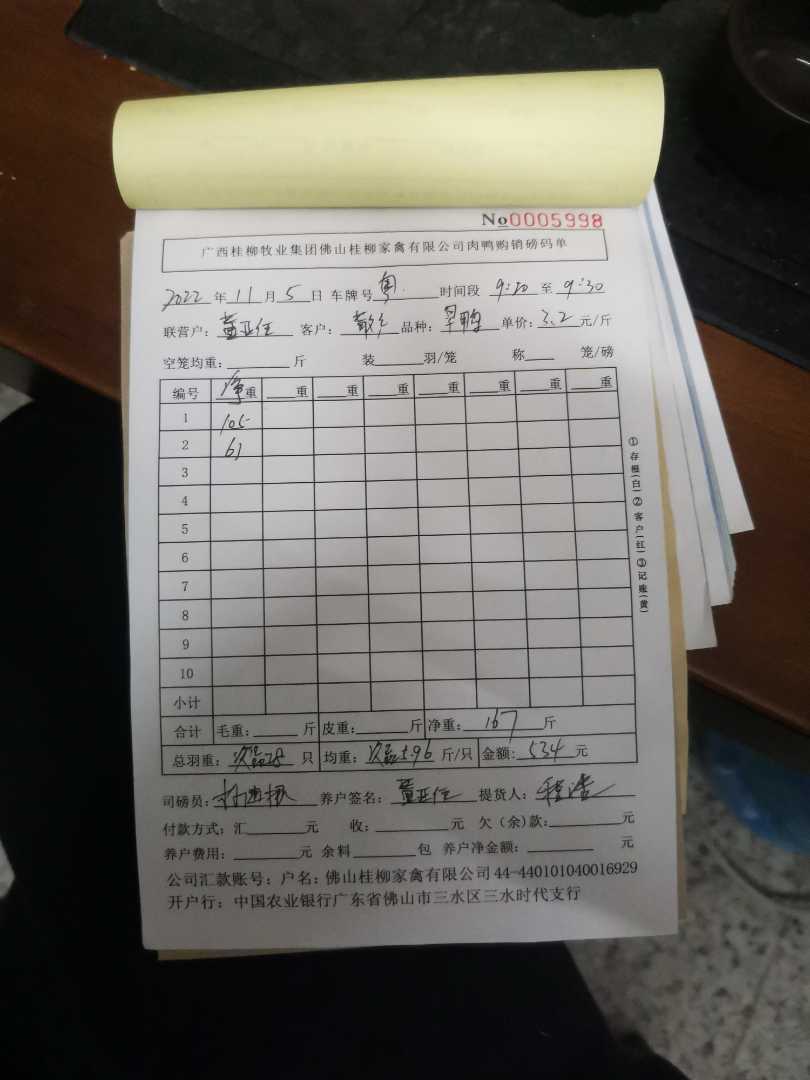 No0005998
广西桂柳牧业集团佛山桂柳家禽有限公司肉鸭购销磅码单
2022年11月5日 车牌号粤 时间段 9:20至9:30
联营户:董亚任 客户: 品种:旱鸭 单价:3.2元/斤
空笼均重: 斤 装 羽/笼 称 笼/磅
编号 净重 重 重 重 重 重 重 重
1 105
2 61
3
4
5
6
7
8
9
10
小计
合计 毛重: 斤 皮重: 斤 净重:167斤
总羽重: 28只 均重: 5.96斤/只 金额:534元
司磅员: 养户签名:董亚任 提货人:程浩
付款方式:汇 元 收: 元 欠(余)款: 元
养户费用: 元 余料 包 养户净金额: 元
公司汇款账号:户名:佛山桂柳家禽有限公司44-440101040016929
开户行:中国农业银行广东省佛山市三水区三水时代支行
①存根(白)②客户(红)③记账(黄)